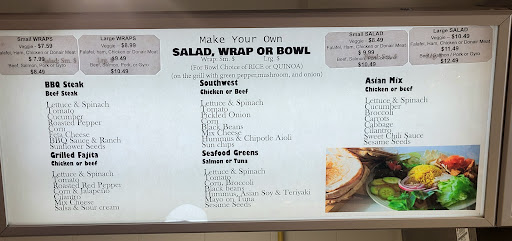 Small WRAPS
Veggie - $7.59
Falafel, Ham, Chicken or Donair Meat
$ 7.99
Beef, Salmon, Pork or Gyro
$8.49
Large WRAPS
Veggie - $8.99
Falafel, Ham, Chicken or Donair Meat
$9.49
Beef, Salmon, Pork or Gyro
$10.49
Make Your Own
SALAD, WRAP OR BOWL
Wrap Sm. $ Lrg. $
(For Bowl Choice of RICE or QUINOA)
(on the grill with green pepper, mushroom, and onion)
Small SALAD
Veggie - $8.49
Falafel, Ham, Chicken or Donair Meat
$ 9.99
Beef, Salmon, Pork or Gyro
$10.49
Large SALAD
Veggie - $10.49
Falafel, Ham, Chicken or Donair Meat
$11.49
Beef, Salmon, Pork or Gyro
$12.49
BBQ Steak
Beef Steak
Lettuce & Spinach
Tomato
Cucumber
Roasted Pepper
Corn
Feta Cheese
BBQ Sauce & Ranch
Sunflower Seeds
Grilled Fajita
Chicken or beef
Lettuce & Spinach
Tomato
Roasted Red Pepper
Corn & Jalapeno
Cilantro
Mix Cheese
Salsa & Sour cream
Southwest
Chicken or Beef
Lettuce & Spinach
Tomato
Pickled Onion
Corn
Black Beans
Mix Cheese
Hummus & Chipotle Aioli
Sun chips
Seafood Greens
Salmon or Tuna
Lettuce & Spinach
Tomato
Corn, Broccoli
Black beans
Hummus, Asian Soy & Teriyaki
Mayo on Tuna
Sesame Seeds
Asian Mix
Chicken or beef
Lettuce & Spinach
Cucumber
Broccoli
Carrots
Cabbage
Cilantro
Sweet Chili Sauce
Sesame Seeds